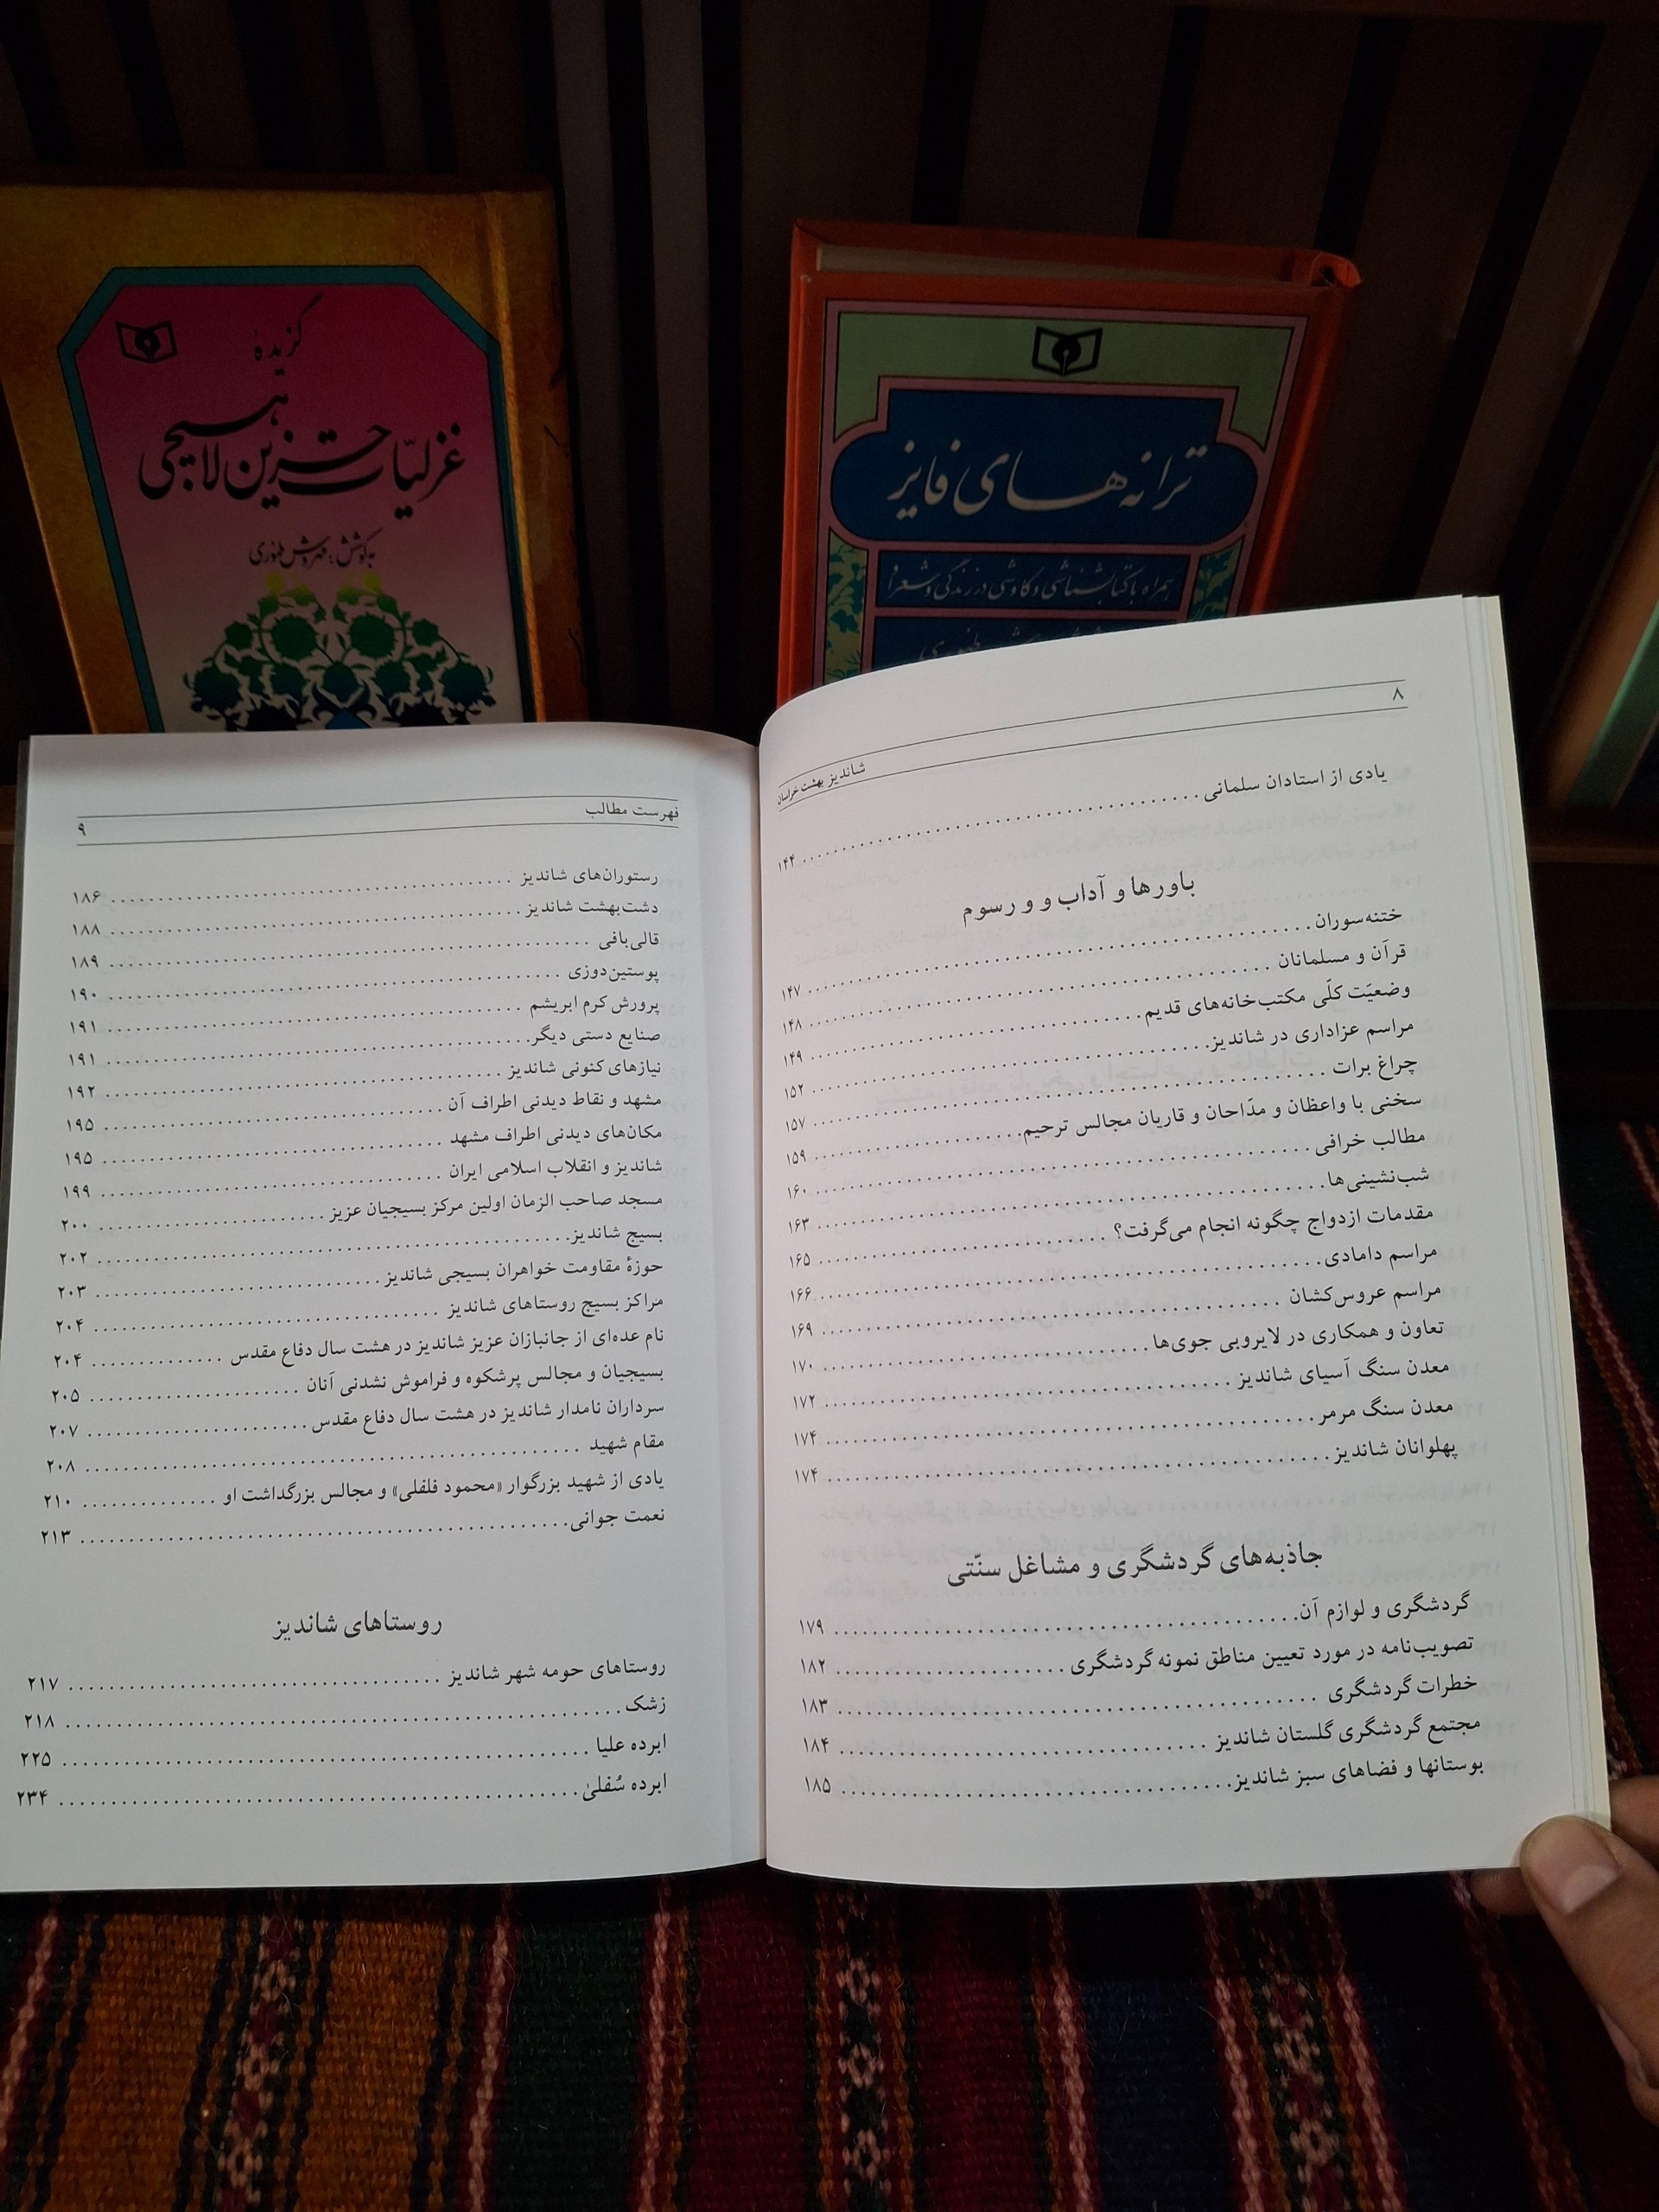 گزیدهٔ
غزلیّات حزین لاهیجی
به کوشش: مهروش طهوری
ترانه‌های فایز
همراه با کتابشناسی و کاوشی در زندگی و شعر او
۸
شاندیز بهشت خراسان
یادی از استادان سلمانی ........ ۱۴۴
باورها و آداب و و رسوم
ختنه‌سوران ........ ۱۴۷
قرآن و مسلمانان ........ ۱۴۸
وضعیّت کلّی مکتب‌خانه‌های قدیم ........ ۱۴۹
مراسم عزاداری در شاندیز ........ ۱۵۲
چراغ برات ........ ۱۵۷
سخنی با واعظان و مدّاحان و قاریان مجالس ترحیم ........ ۱۵۹
مطالب خرافی ........ ۱۶۰
شب‌نشینی‌ها ........ ۱۶۳
مقدمات ازدواج چگونه انجام می‌گرفت؟ ........ ۱۶۵
مراسم دامادی ........ ۱۶۶
مراسم عروس‌کشان ........ ۱۶۹
تعاون و همکاری در لایروبی جوی‌ها ........ ۱۷۰
معدن سنگ آسیای شاندیز ........ ۱۷۲
معدن سنگ مرمر ........ ۱۷۴
پهلوانان شاندیز ........ ۱۷۴
جاذبه‌های گردشگری و مشاغل سنّتی
گردشگری و لوازم آن ........ ۱۷۹
تصویب‌نامه در مورد تعیین مناطق نمونه گردشگری ........ ۱۸۲
خطرات گردشگری ........ ۱۸۳
مجتمع گردشگری گلستان شاندیز ........ ۱۸۴
بوستانها و فضاهای سبز شاندیز ........ ۱۸۵
فهرست مطالب
۹
رستوران‌های شاندیز ........ ۱۸۶
دشت‌بهشت شاندیز ........ ۱۸۸
قالی‌بافی ........ ۱۸۹
پوستین‌دوزی ........ ۱۹۰
پرورش کرم ابریشم ........ ۱۹۱
صنایع دستی دیگر ........ ۱۹۱
نیازهای کنونی شاندیز ........ ۱۹۲
مشهد و نقاط دیدنی اطراف آن ........ ۱۹۵
مکان‌های دیدنی اطراف مشهد ........ ۱۹۵
شاندیز و انقلاب اسلامی ایران ........ ۱۹۹
مسجد صاحب الزمان اولین مرکز بسیجیان عزیز ........ ۲۰۰
بسیج شاندیز ........ ۲۰۲
حوزهٔ مقاومت خواهران بسیجی شاندیز ........ ۲۰۳
مراکز بسیج روستاهای شاندیز ........ ۲۰۴
نام عده‌ای از جانبازان عزیز شاندیز در هشت سال دفاع مقدس ........ ۲۰۴
بسیجیان و مجالس پرشکوه و فراموش نشدنی آنان ........ ۲۰۵
سرداران نامدار شاندیز در هشت سال دفاع مقدس ........ ۲۰۷
مقام شهید ........ ۲۰۸
یادی از شهید بزرگوار «محمود فلفلی» و مجالس بزرگداشت او ........ ۲۱۰
نعمت جوانی ........ ۲۱۳
روستاهای شاندیز
روستاهای حومه شهر شاندیز ........ ۲۱۷
زشک ........ ۲۱۸
ابرده علیا ........ ۲۲۵
ابرده سُفلیٰ ........ ۲۳۴